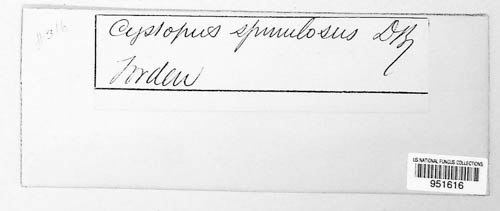 #316
Cystopus spinulosus DBy
Jordan
US NATIONAL FUNGUS COLLECTIONS
951616